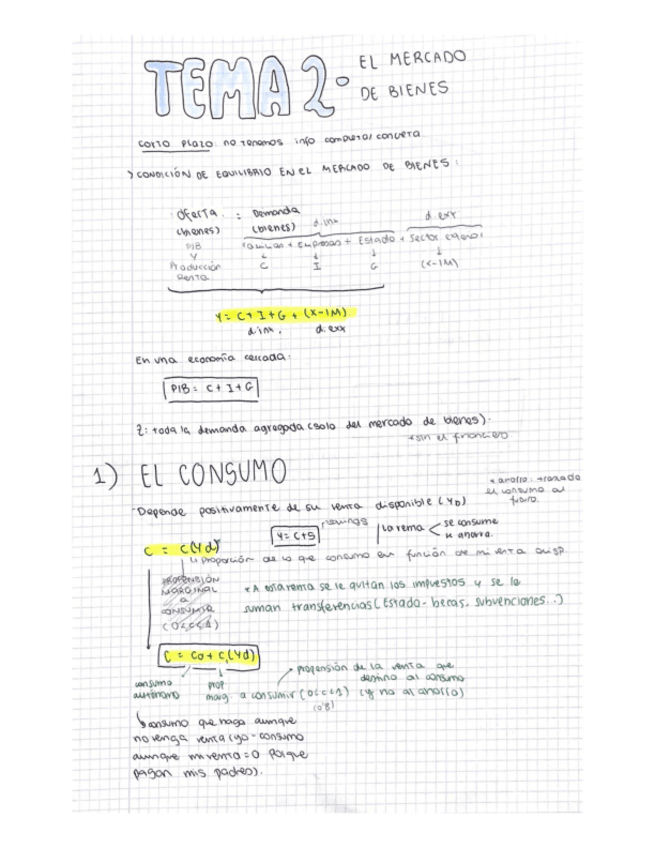 TEMA 2. EL MERCADO
DE BIENES
corto plazo: no tenemos info completa/concreta
> CONDICIÓN DE EQUILIBRIO EN EL MERCADO DE BIENES:
Oferta : Demanda d. int d. ext
(bienes) (bienes)
PIB Familias + Empresas + Estado + Sector exterior
Y ↓ ↓ ↓ ↓
Producción C I G (X-IM)
Renta
Y = C + I + G + (X-IM)
d. int. d. ext
En una economía cerrada:
PIB = C + I + G
Z: toda la demanda agregada (solo del mercado de bienes).
*sin el financiero
1) EL CONSUMO
* ahorro:
el consumo al
futuro.
·Depende positivamente de su renta disponible (YD)
savings
Y = C+S
La renta < se consume
se ahorra.
C = C(Yd)
↳ proporción de lo que consumo en función de mi renta disp.
PROPENSIÓN
MARGINAL
A
CONSUMIR
(0<c<1)
* A esta renta se le quitan los impuestos y se le
suman transferencias (Estado - becas, subvenciones...)
C = C0 + c1(Yd)
→ propensión de la renta que
destino al consumo
(y no al ahorro)
consumo
autónomo
prop
marg a consumir (0<c<1)
(0'8)
↳ consumo que hago aunque
no tenga renta (yo - consumo
aunque mi renta = 0 porque
pagan mis padres).